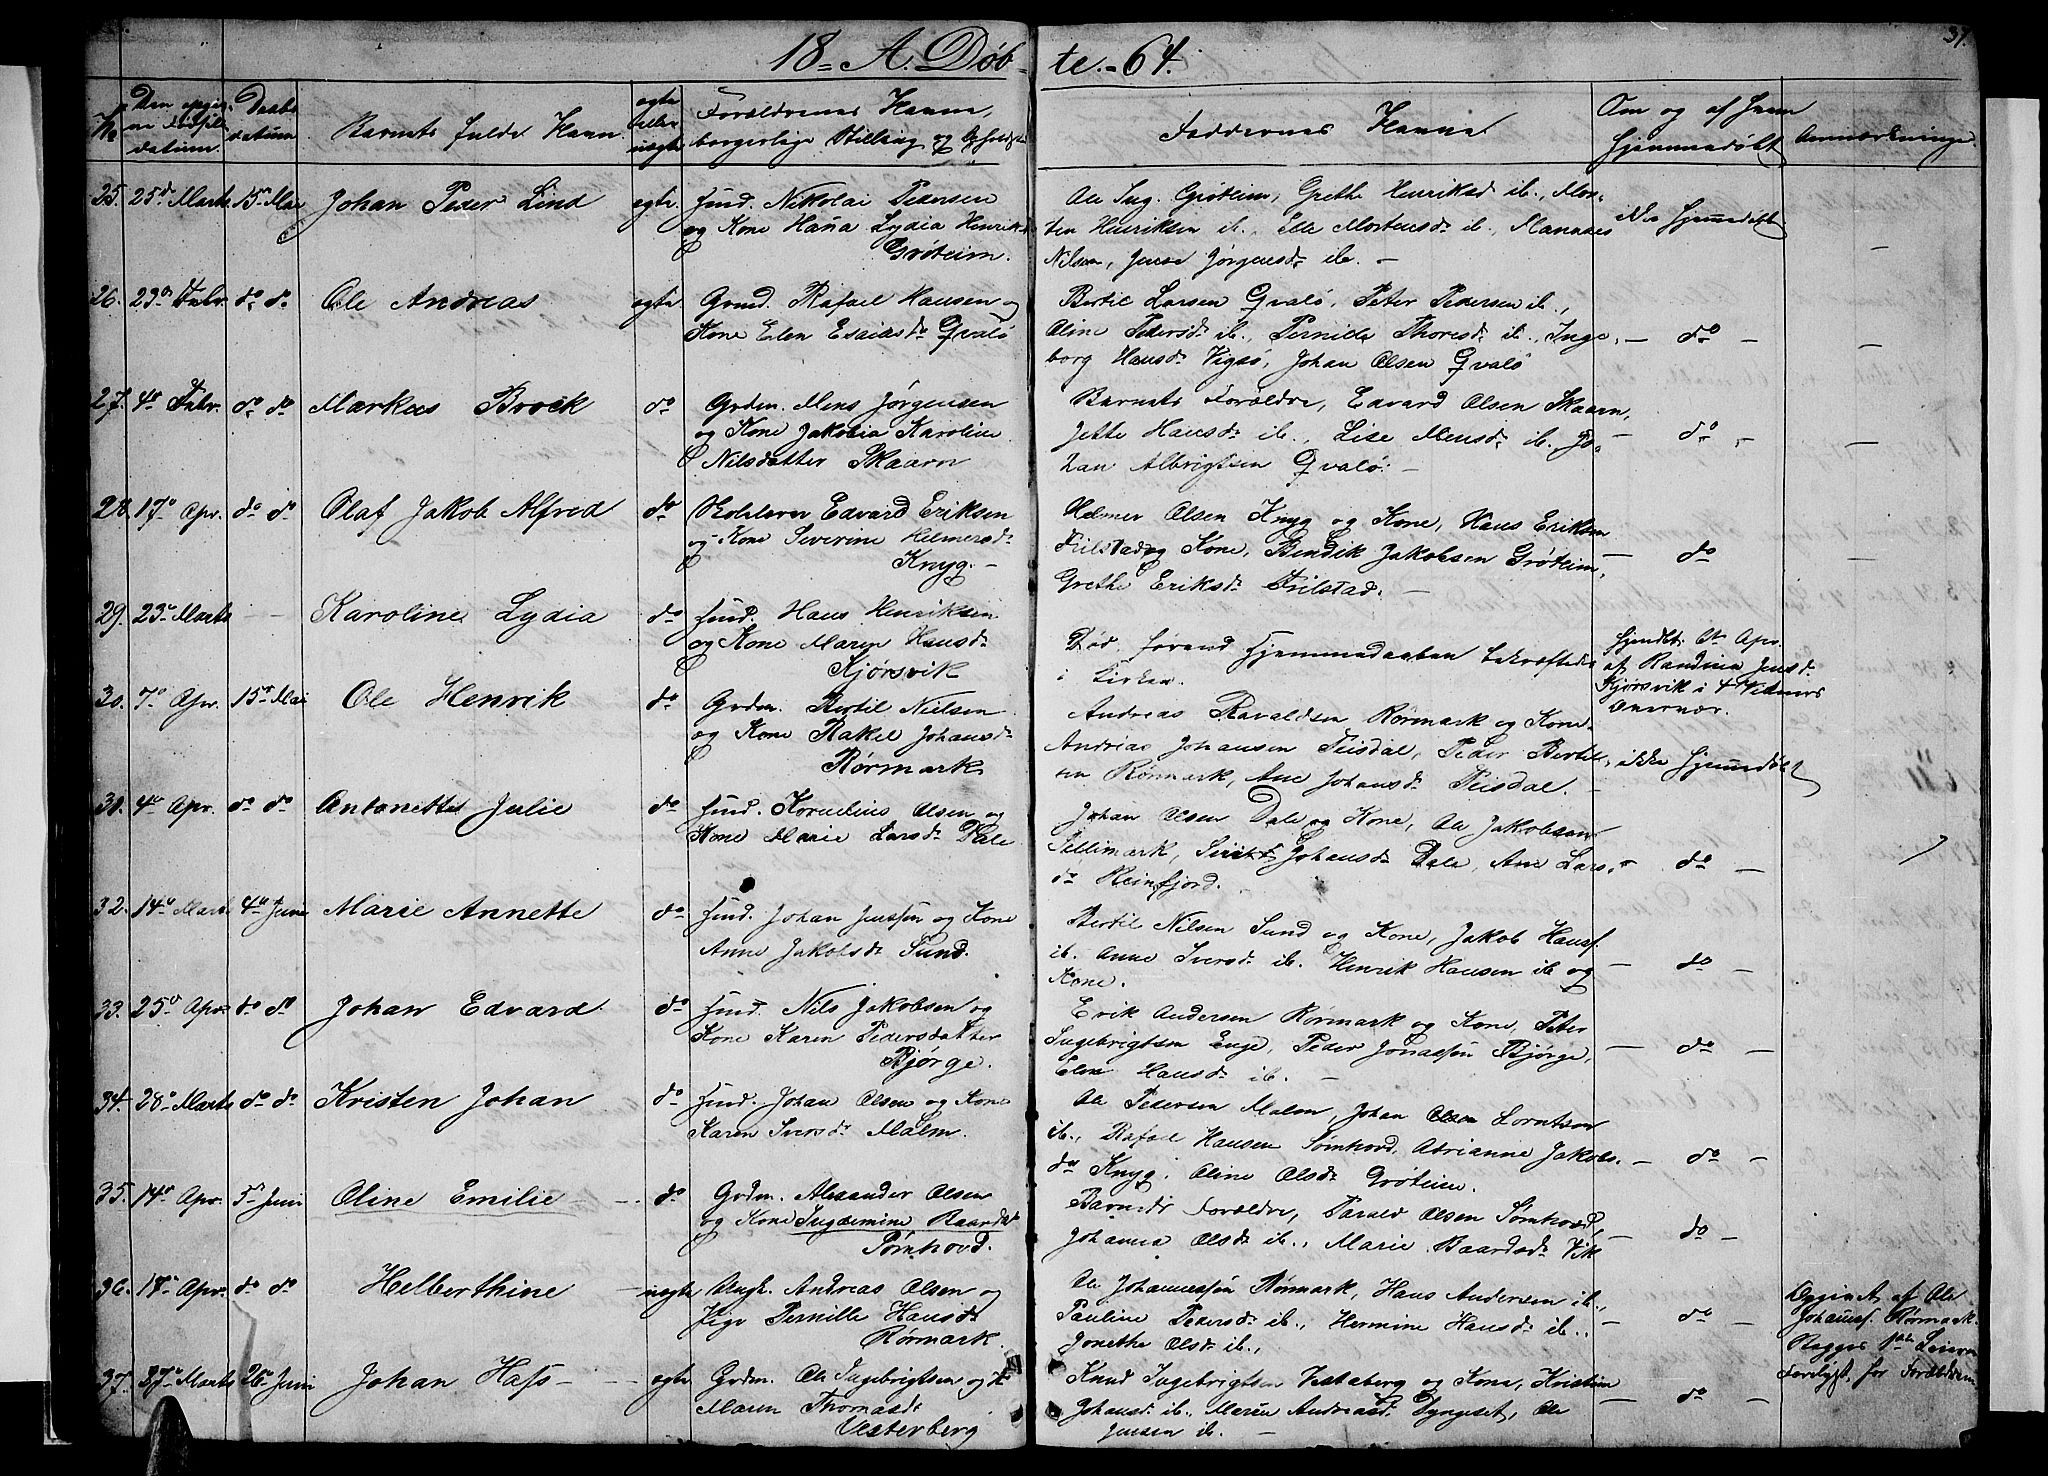 37.
18 = A. Døb-
te. = 64.
No
Den opgiv-
ne Fødsels
datum.
Daabs
datum.
Barnets fulde Navn
ægte
eller
uægte
Forældrenes Navne,
borgerlige Stilling og Opholdssted
Faddernes Navne
Om og af hvem
hjemmedøbt
Anmærkninger
25. 25de Marts 15de Mai Johan Peder Lind ægte. Huusmd. Nikolai Pedersen
og Kone Hanna Lydia Henriksd
Grøteim.
Ole Ing. Grøteim, Grethe Henriksd ib., Mor-
ten Henriksen ib., Elle Mortensdr ib., Mannæs
Nilsen, Jørgensdr ib. —
ikke hjemmedøbt
—
26. 23de Febr. do do Ole Andreas ægte Grmd. Rafael Hansen og
Kone Elen Esaiasdr Qvalø
Bertil Larsen Qvalø, Peter Pedersen ib.,
Oline Pedersdr ib., Pernille Thoresdr ib., Inge-
borg Hansdr Vigsø, Johan Olsen Qvalø
— do —
—
27. 4de Febr. do do Markus Brock do Grdm. Mens Jørgensen
og Kone Jakobia Karoline
Nilsdatter Skaarn
Barnets Forældre, Edvard Olsen Skaarn,
Jette Hansdr ib., Lise Mensdr ib. Jo-
han Albrigtsen Qvalø. —
— do —
—
28. 17de Apr. do do Olaf Jakob Alfred do Edvard Eriksen
og Kone Severine Helmersdr
Knyg. —
Helmer Olsen Knyg og Kone, Hans Eriksen
Frilstad og Kone, Bendik Jakobsen Grøteim,
Grethe Eriksdr Frilstad. —
— do
—
29. 23de Marts — Karoline Lydia do Huusmd. Hans Henriksen
og Kone Maren Hansdr
Kjørsvik
Død forend Hjemmedaaben bekræftedes
i Kirken.
Hjemdbt. Apr.
af Randina Jensdr
Kjørsvik i 4 Vidners
Overvær.
30. 7de Apr. 15de Mai Ole Henrik do Grdm. Bertil Nielsen
og Kone Rakel Johansdr
Rørmark
Andreas Ravaldsen Rørmark og Kone
Andrias Johansen Teisdal, Peder Bertil-
sen Rørmark, Ane Johansdr Teisdal. —
ikke hjemmedøbt
31. 4de Apr. do do Antonette Julie do Huusmd. Kornelius Olsen og
Kone Marie Larsdr Dale
Johan Olsen Dale og Kone, Ole Jakobsen
Tellimark, Johansdr Dale, Ane Lars-
dr Reinfjord.
— do —
32. 14de Marts 4de Juni Marie Annette do Huusmd. Johan Jenssen og Kone
Anne Jakobsdr Sund.
Bertil Nilsen Sund og Kone, Jakob Hanss.
ib. Anne Iversdr ib. Henrik Hansen ib og
Kone.
— do —
33. 25de Apr. do do Johan Edvard. do Huusmd. Nils Jakobsen og
Kone Karen Pedersdatter
Bjørge.
Erik Andersen Rørmark og Kone, Peter
Ingebrigtsen Enge, Peder Jonassen Bjørge,
Elen Hansdr ib. —
— do —
34. 28de Marts do do Kristen Johan do Huusmd. Johan Olsen og Kone
Karen Iversdr Malm.
Ole Pedersen Malm, Johan Olsen Lorntsen
ib., Rafael Hansen Sømhovd, Adrianne Jakobs-
dr Knyg. Oline Olsdr Grøteim.
— do —
35. 14de Apr. 5te Juni Oline Emilie do Grdm. Alexander Olsen
og Kone Ingdemine Baardsdr
Sømhovd.
Barnets Forældre, Olsen Sømhovd,
Johanna Olsdr ib., Marie Baardsdr Vik
— do —
36. 17de Apr. do do Helberthine — uægte Ungk. Andreas Olsen og
Pige Pernille Hansdr
Rørmark.
Ole Johannessen Rørmark, Hans Andersen ib.,
Pauline Pedersdr ib., Hermine Hansdr ib.,
Jonetha Olsdr ib.,
— do —
Opgivet af Ole
Johanss. Rørmark.
Begges 1ste Leierm.
37. 27de Marts 26de Juni Johan Hass — ægte Grdm. Ole Ingebrigtsen og K.
Maren Thomasdr
Vesterberg
Knud Ingebrigtsen Vesterberg og Kone, Kristine
Johansd. ib., Maren Andreasd. Dyngeset, Ole
Jensen ib. —
— do —